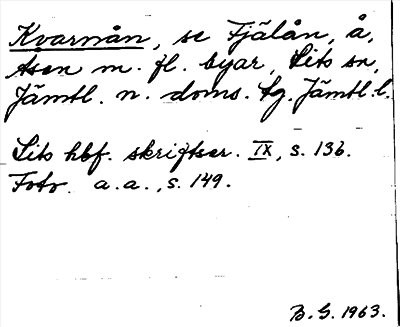 Kvarnån, se Fjälån, å,
Åsen m. fl. byar, Lits sn,
Jämtl. n. doms. tg. Jämtl. l.
Lits hbf. skriftser. IX, s. 136.
Foto a.a., s. 149.
B.G. 1963.